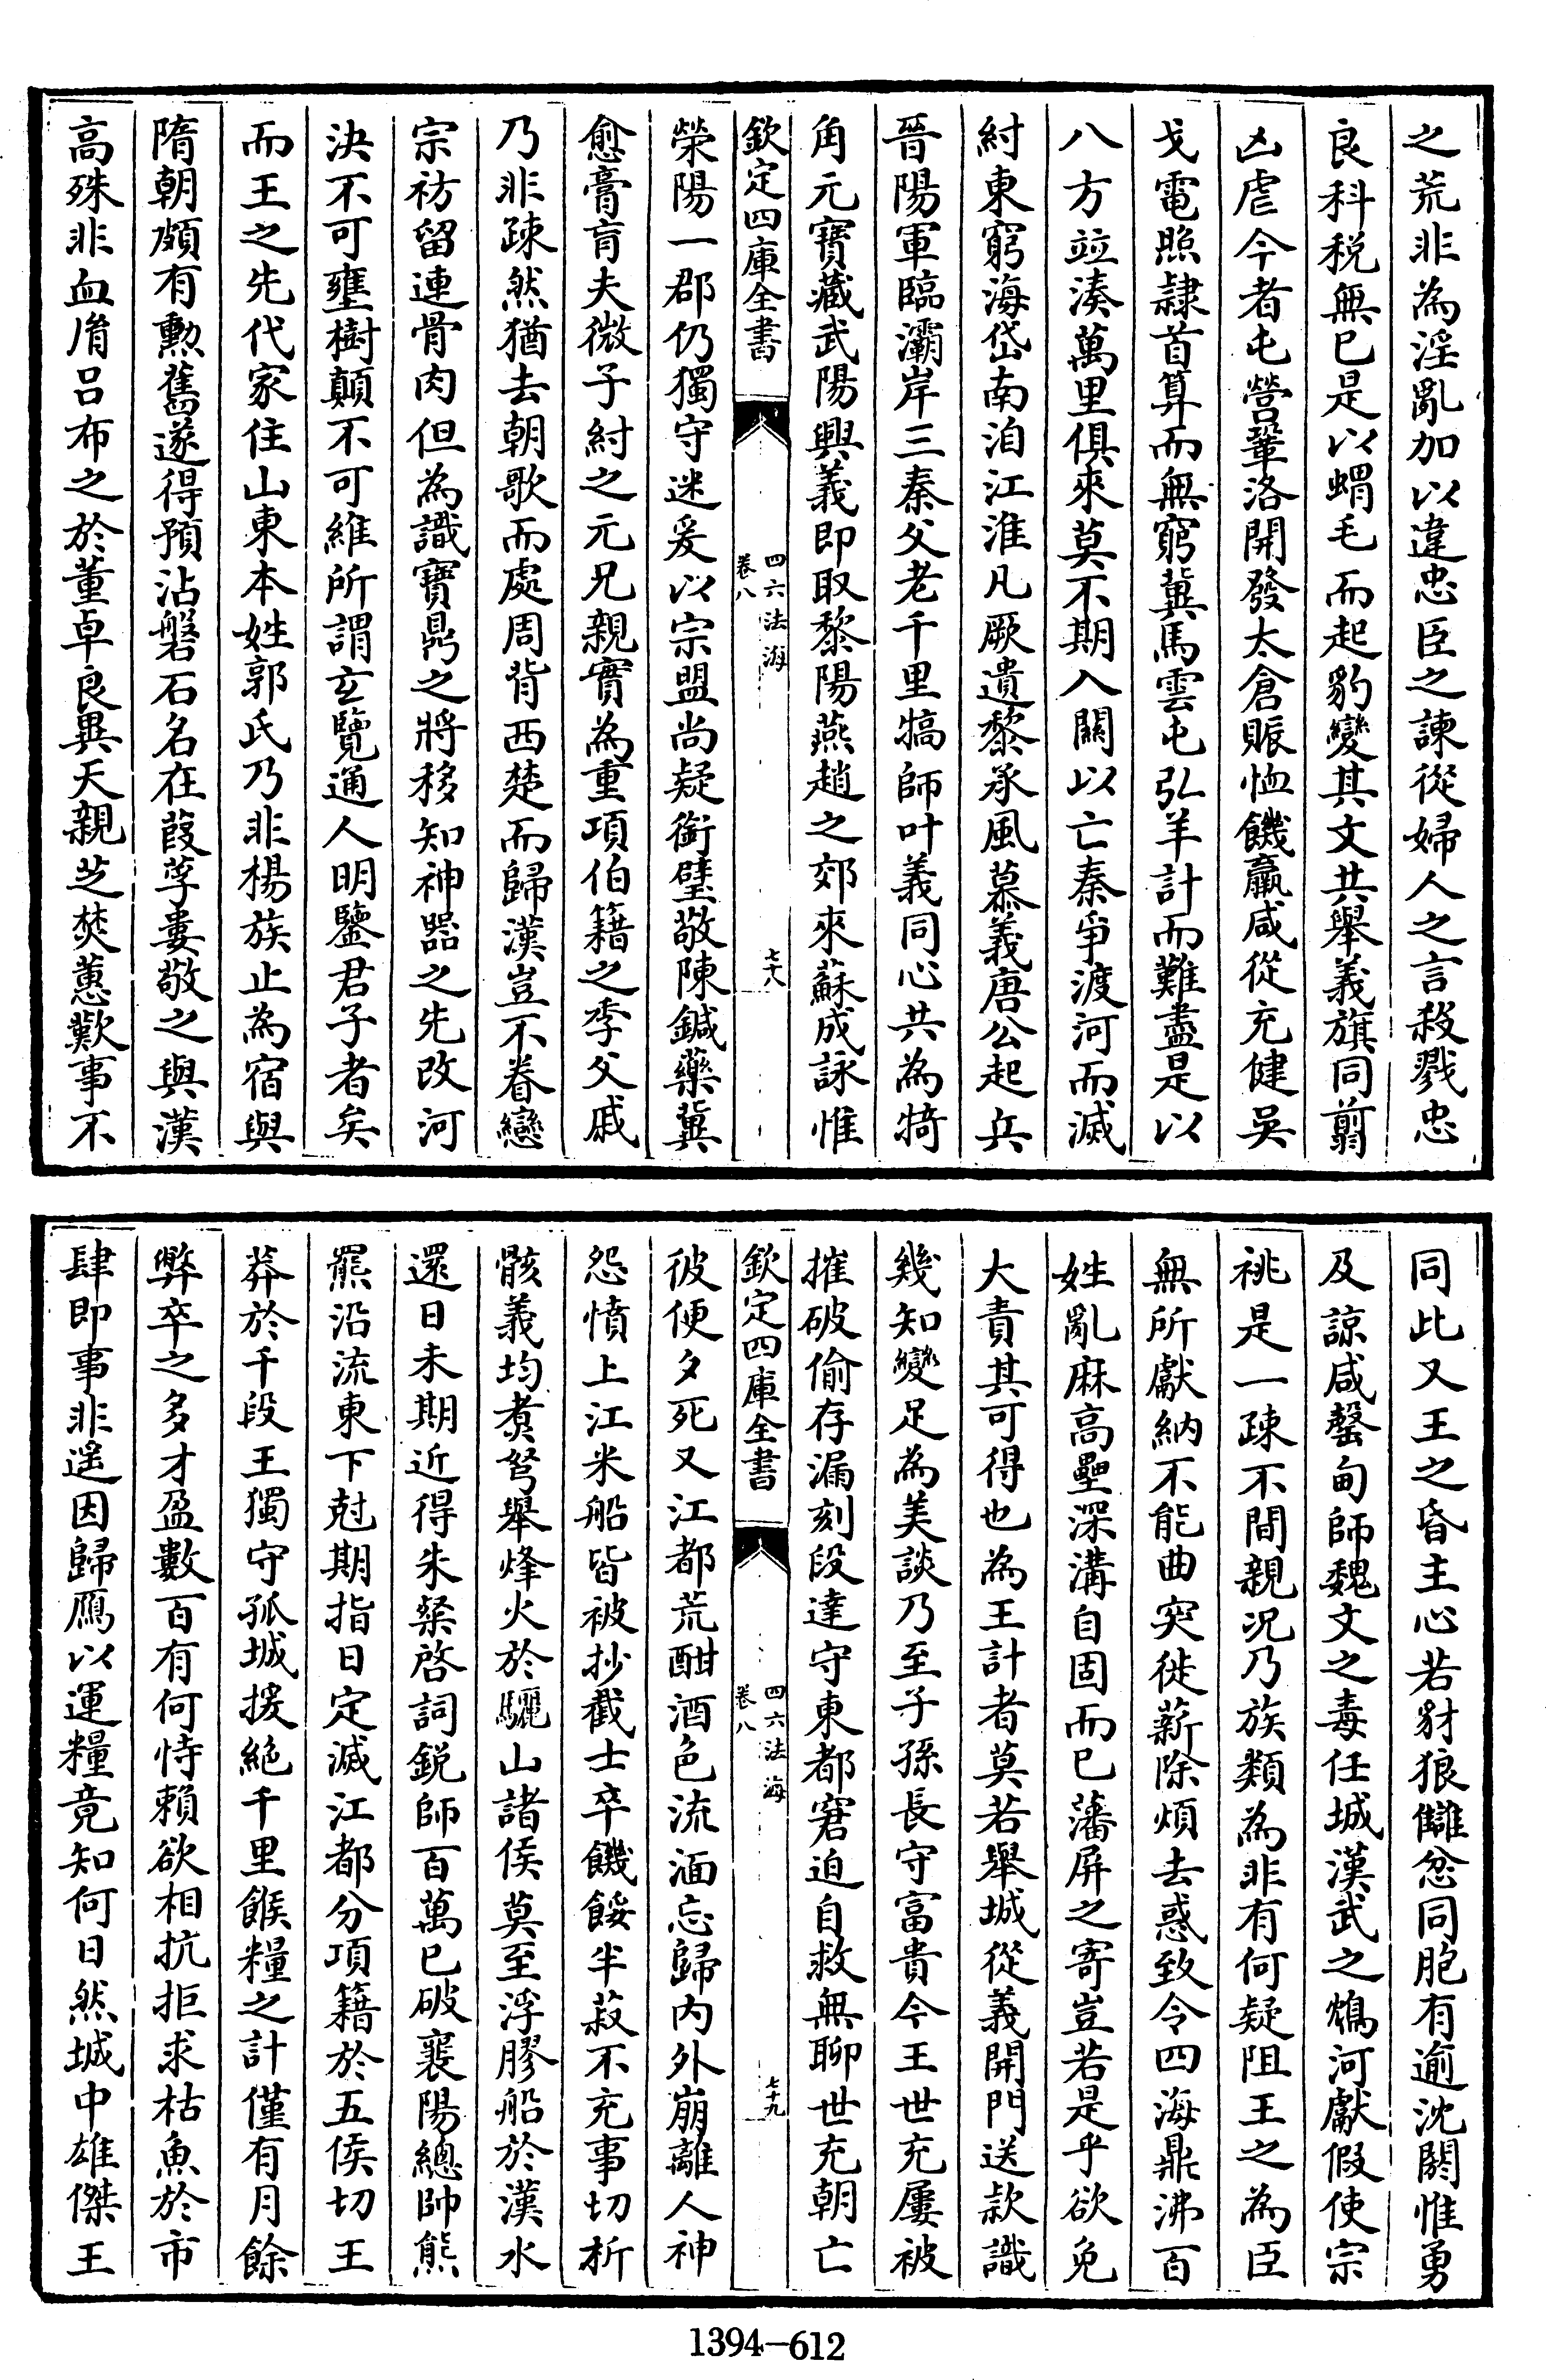 之荒非為淫亂加以違忠臣之諫從婦人之言殺戮忠
良科稅無已是以蝟毛而起豹變其文共舉義旗同翦
凶虐今者屯營鞏洛開發太倉賑恤饑羸咸從充健吳
戈電照隷首算而無窮冀馬雲屯弘羊計而難盡是以
八方竝湊萬里俱來莫不期入關以亡秦爭渡河而滅
紂東窮海岱南洎江淮凡厥遺黎承風慕義唐公起兵
晉陽軍臨灞岸三秦父老千里犒師叶義同心共為犄
角元寶藏武陽興義即取黎陽燕趙之郊來蘇成詠惟
欽定四庫全書
四六法海
卷八
七十八
榮陽一郡仍獨守迷爰以宗盟尚疑銜璧敬陳鍼藥冀
愈膏肓夫微子紂之元兄親實為重項伯籍之季父戚
乃非疎然猶去朝歌而處周背西楚而歸漢豈不眷戀
宗祊留連骨肉但為識寶鼎之將移知神器之先改河
決不可壅樹顛不可維所謂玄覽通人明鑒君子者矣
而王之先代家住山東本姓郭氏乃非楊族止為宿與
隋朝頗有勲舊遂得預沾磐石名在葭莩婁敬之與漢
高殊非血胤呂布之於董卓良異天親芝焚蕙歎事不
同此又王之昏主心若豺狼讎忿同胞有逾沈閼惟勇
及諒咸罄甸師魏文之毒任城漢武之鴆河獻假使宗
祧是一疎不間親况乃族類為非有何疑阻王之為臣
無所獻納不能曲突徙薪除煩去惑致令四海鼎沸百
姓亂麻高壘深溝自固而已藩屏之寄豈若是乎欲免
大責其可得也為王計者莫若舉城從義開門送款識
幾知變足為美談乃至子孫長守富貴今王世充屢被
摧破偷存漏刻段達守東都窘迫自救無聊世充朝亡
欽定四庫全書
四六法海
卷八
七十九
彼便夕死又江都荒酣酒色流湎忘歸内外崩離人神
怨憤上江米船皆被抄截士卒饑餒半菽不充事切析
骸義均煮弩舉烽火於驪山諸侯莫至浮膠船於漢水
還日未期近得朱粲啓詞銳師百萬已破襄陽總帥熊
羆沿流東下尅期指日定滅江都分項籍於五侯切王
莽於千段王獨守孤城援絶千里餱糧之計僅有月餘
弊卒之多才盈數百有何恃賴欲相抗拒求枯魚於市
肆即事非遥因歸鴈以運糧竟知何日然城中雄傑王
1394—612